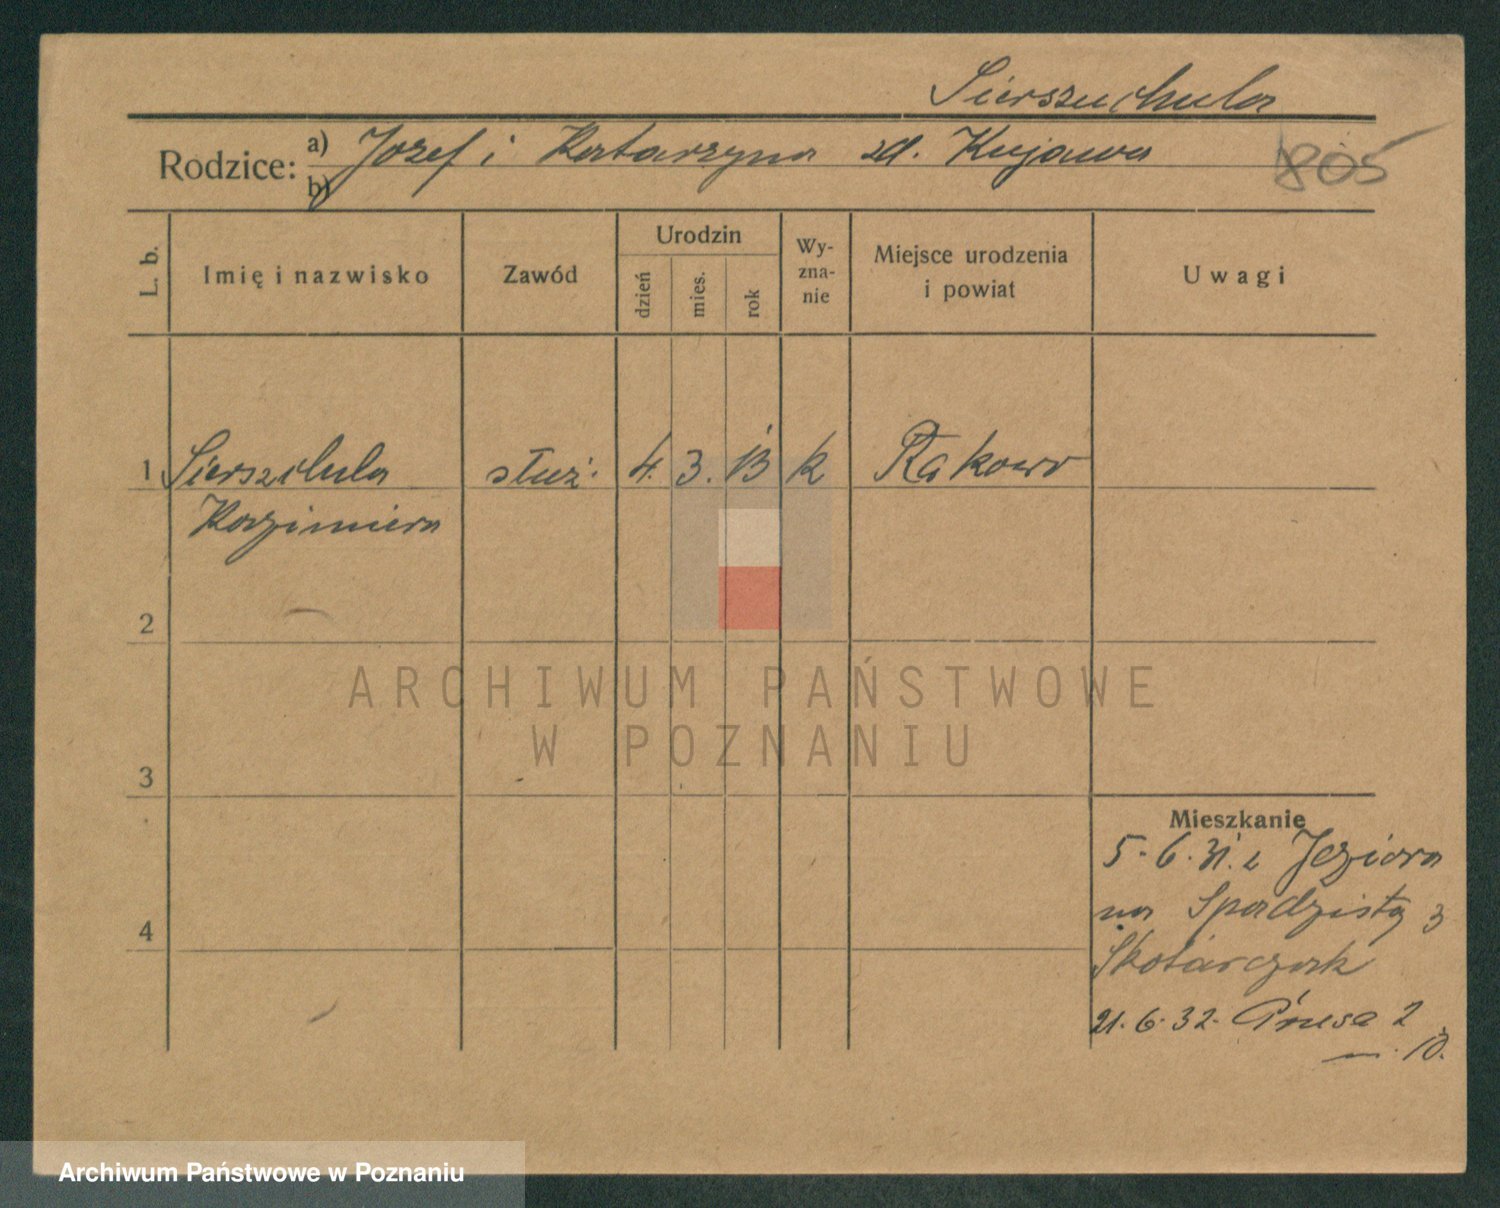 Sierszuchula
Rodzice: a) Jozef i Katarzyna zd. Kujawa
b)
805
L. b.
Imię i nazwisko
Zawód
Urodzin
dzień
mies.
rok
Wy-
zna-
nie
Miejsce urodzenia
i powiat
Uwagi
1 Sierszchula służ. 4. 3. 13 k Rakowo
Kazimiera
2
3
4
Mieszkanie
5.6.31. z Jeziora
na Spadzistą 3
Skotarczak
21.6.32. Prusa 2
ARCHIWUM PAŃSTWOWE
W POZNANIU
Archiwum Państwowe w Poznaniu